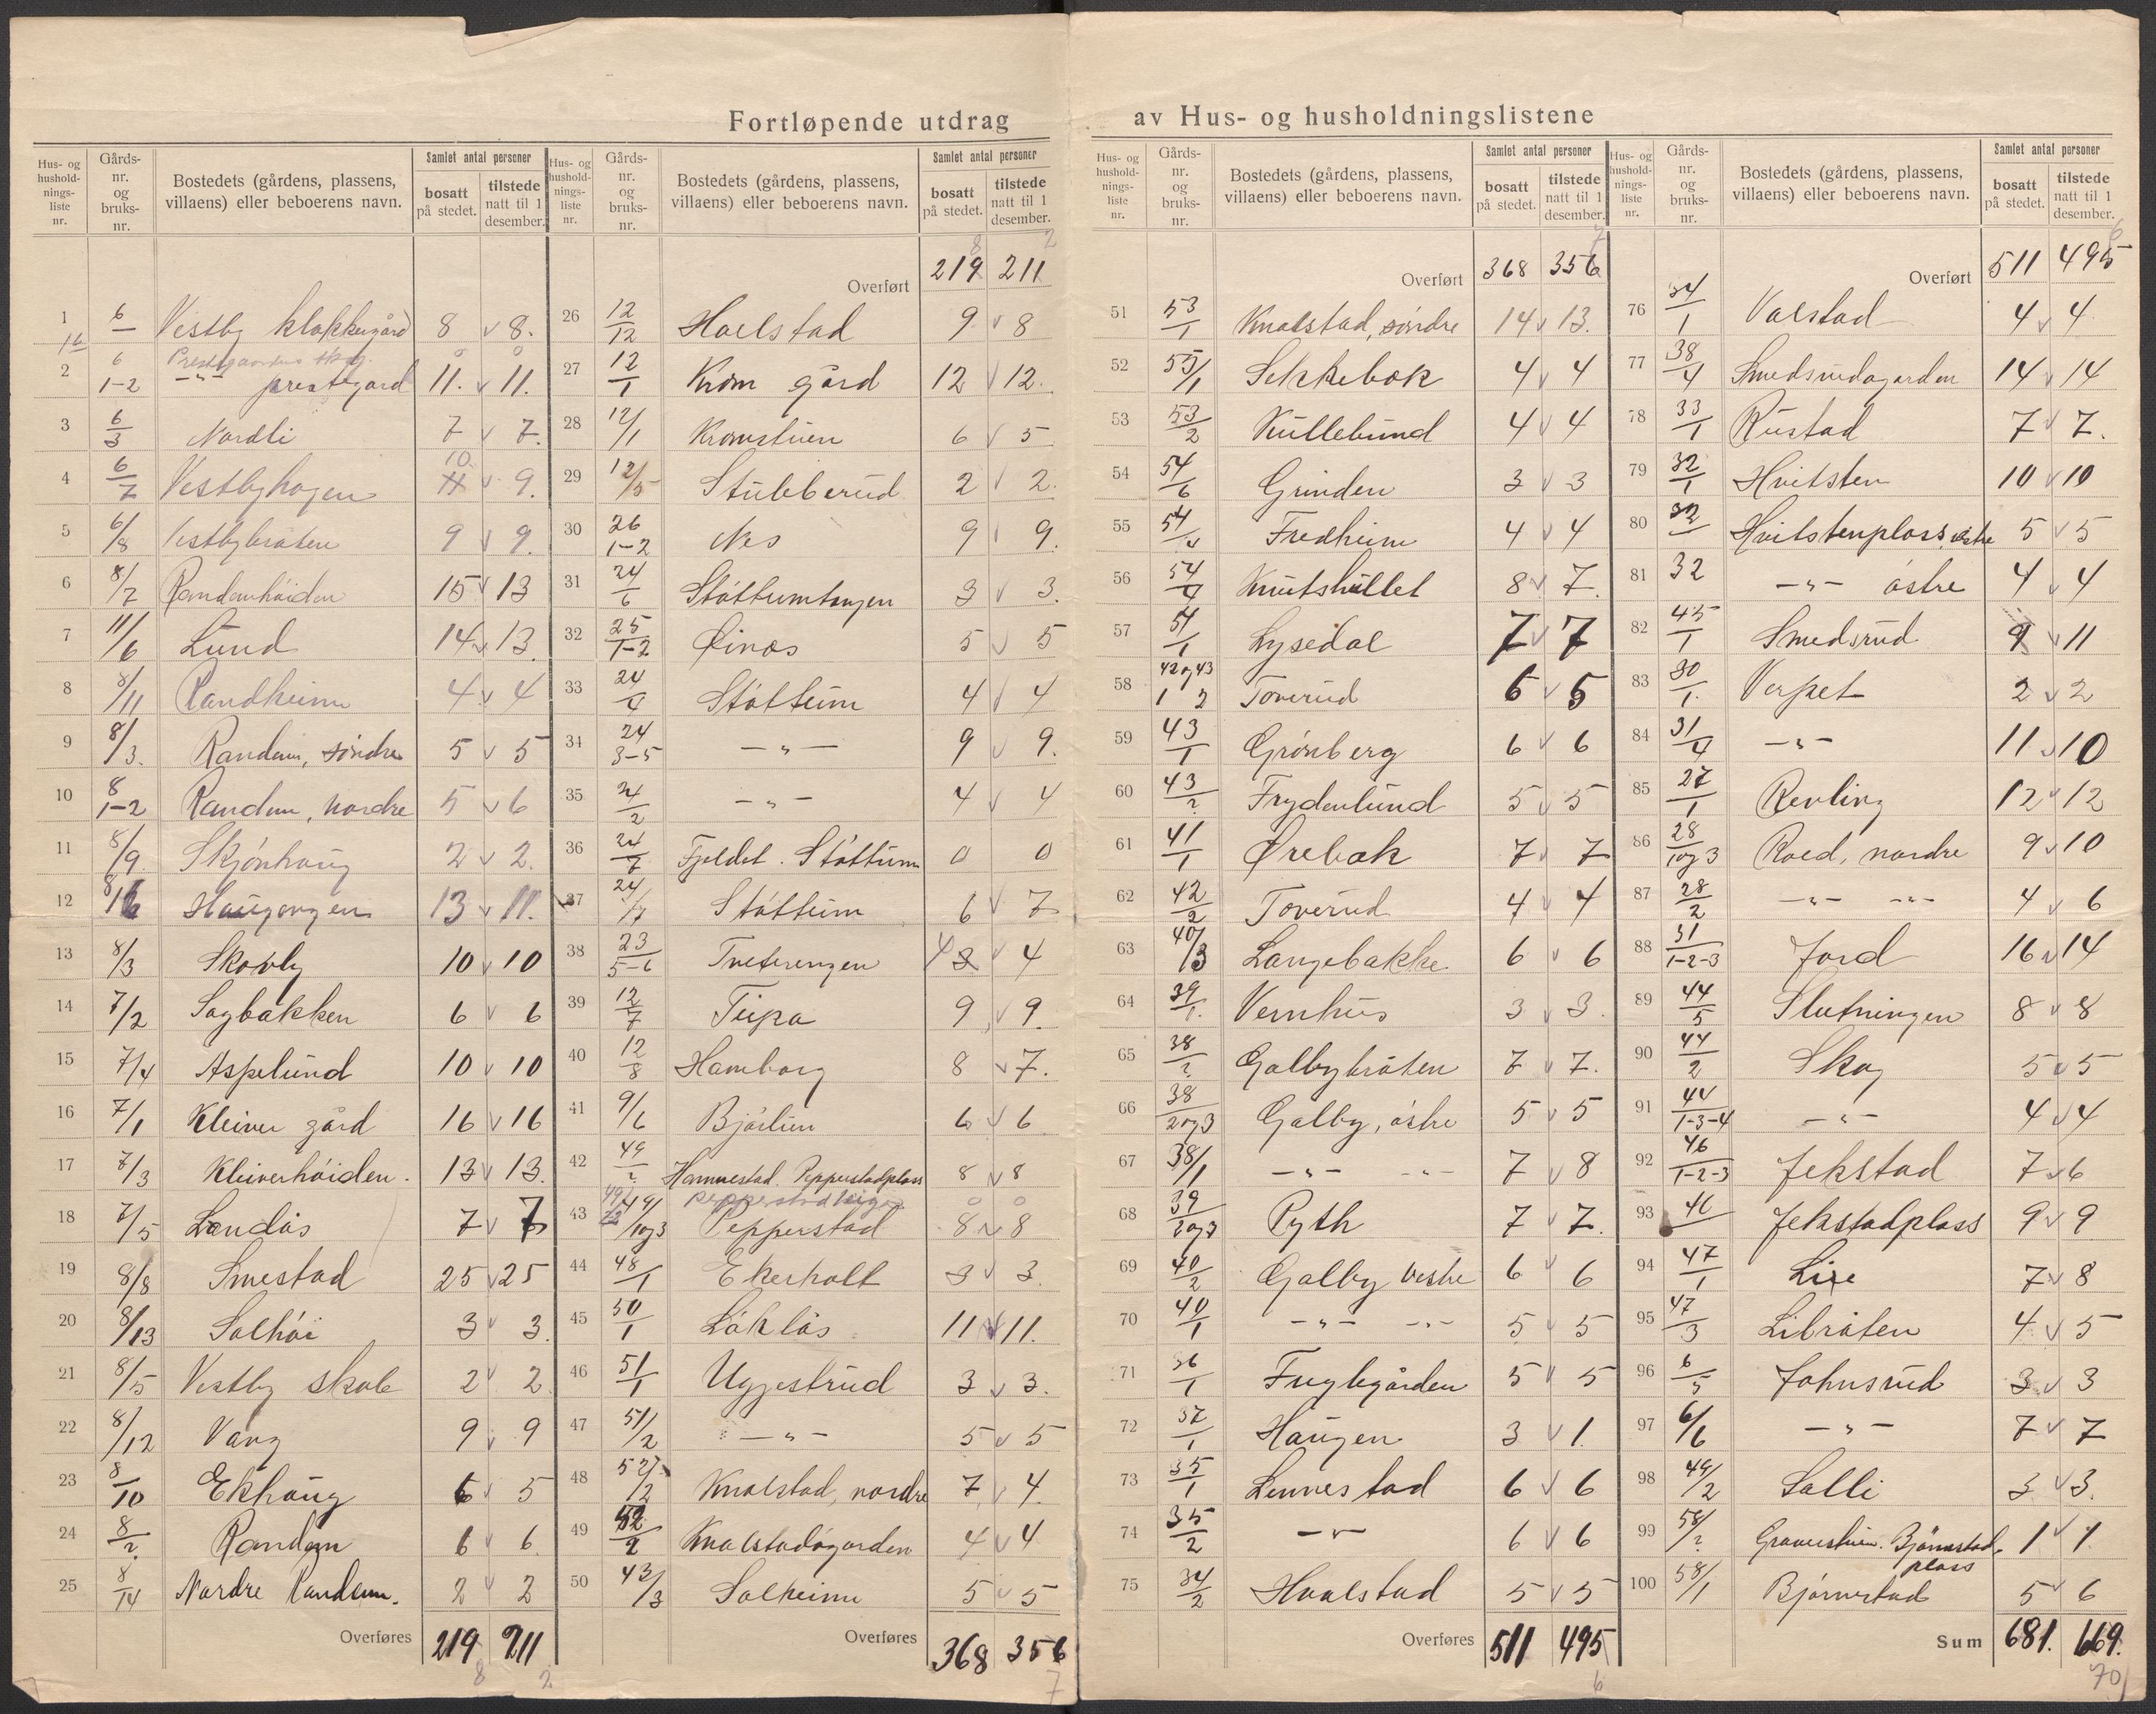 Fortløpende utdrag av Hus- og husholdningslistene
Hus- og hushold-nings-liste nr. Gårds-nr. og bruks-nr. Bostedets (gårdens, plassens, villaens) eller beboerens navn. Samlet antal personer bosatt på stedet. tilstede natt til 1 desember.
1 6/ Vestby klokkergård 8 v 8.
2 6/1-2 -"- prestegard 11. v 11.
3 6/3 Nordli 7 v 7.
4 6/7 Vestbyhagen 10 v 9.
5 6/8 Vestbybråten 9 v 9.
6 8/7 Randemhöiden 15 v 13
7 11/6 Lund 14 v 13.
8 8/11 Randheim 4 v 4
9 8/3. Randem, søndre 5 v 5
10 8/1-2 Randem, nordre 5 v 6
11 8/9. Skjönhaug 2 v 2.
12 8/16 Haugongen 13 v 11.
13 8/3 Skovly 10 v 10
14 7/2 Sagbakken 6 v 6
15 7/4 Aspelund 10 v 10
16 7/1 Kleiver gård 16 v 16
17 7/3 Kleiverhöiden. 13 v 13.
18 7/5 Landås 7 v 7
19 8/8 Smestad 25 v 25
20 8/13 Solhöi 3 v 3.
21 8/5 Vestby skole 2 v 2
22 8/12 Vang 9 v 9
23 8/10 Ekhaug 6 v 5
24 8/2. Randem 6 v 6
25 8/14 Nordre Randem. 2 v 2
Overføres 219 211
8 2
Hus- og hushold-nings-liste nr. Gårds-nr. og bruks-nr. Bostedets (gårdens, plassens, villaens) eller beboerens navn. Samlet antal personer bosatt på stedet. tilstede natt til 1 desember.
8 2
Overført 219 211
26 12/12 Hoelstad 9 v 8
27 12/1 Krom gård 12 v 12.
28 12/1 Kromstuen 6 v 5
29 12/5 Stubberud 2 v 2.
30 26/1-2 Nes 9 v 9.
31 24/6 Støttumtangen 3 v 3.
32 25/1-2 Øinos 5 v 5
33 24/4 Støttum 4 v 4
34 24/3-5 -"- 9 v 9.
35 24/2 -"- 4 v 4
36 24/7 Fjeldet. Støttum 0 0
37 24/7 Støttum 6 v 7
38 23/5-6 Tveterengen 4 v 4
39 12/7 Tupa 9 v 9.
40 12/8 Hamborg 8 v 7.
41 9/6 Bjørlien 6 v 6
42 49/? Hannestad. Pepperstadplass 8 v 8
43 49/1og3 Pepperstad 8 v 8
44 48/1 Ekerholt 3 v 3.
45 50/1 Løklås 11 v 11.
46 51/1 Uggestrud 3 v 3.
47 51/2 -"- 5 v 5
48 52/2 Knalstad, nordre 7 v 4.
49 52/2 Knalstadøgarden 4 v 4
50 43/3 Solheim 5 v 5
Overføres 368 356
7
Hus- og hushold-nings-liste nr. Gårds-nr. og bruks-nr. Bostedets (gårdens, plassens, villaens) eller beboerens navn. Samlet antal personer bosatt på stedet. tilstede natt til 1 desember.
7
Overført 368 356
51 53/1 Knalstad, søndre 14 v 13.
52 55/1 Sekkebæk 4 v 4
53 53/2 Kullebund 4 v 4
54 54/6 Grinden 3 v 3
55 54/4 Fredheim 4 v 4
56 54/4 Knutshullet 8 v 7.
57 54/1 Lysedal 7 v 7
58 42og43/1 2 Toverud 6 v 5
59 43/1 Grønberg 6 v 6
60 43/2 Frydenlund 5 v 5
61 41/1 Ørebæk 7 v 7
62 42/2 Toverud 4 v 4
63 40/3 Langebakke 6 v 6
64 39/1. Vernhus 3 v 3.
65 38/? Galbybråten 7 v 7.
66 38/2og3 Galby, østre 5 v 5
67 38/1 -"- -"- 7 v 8
68 39/2og3 Pyth 7 v 7.
69 40/2 Galby vestre 6 v 6
70 40/1 -"- -"- 5 v 5
71 36/1 Fuglegården 5 v 5
72 37/1 Haugen 3 v 1.
73 35/1 Lennestad 6 v 6
74 35/2 -"- 6 v 6
75 34/2 Hvalstad 5 v 5
Overføres 511 495
6
Hus- og hushold-nings-liste nr. Gårds-nr. og bruks-nr. Bostedets (gårdens, plassens, villaens) eller beboerens navn. Samlet antal personer bosatt på stedet. tilstede natt til 1 desember.
6
Overført 511 495
76 34/1 Valstad 4 v 4
77 38/4 Smedsrudøgarden 14 v 14
78 33/1 Rustad 7 v 7.
79 32/1 Hvitsten 10 v 10
80 32/ Hvitstenplass, vestre 5 v 5
81 32 -"- østre 4 v 4
82 45/1 Smedsrud 9 v 11
83 30/1. Verpet 2 v 2
84 31/4 -"- 11 v 10
85 27/1 Revling 12 v 12
86 28/1og3 Roed, nordre 9 v 10
87 28/2 -"- -"- 4 v 6
88 31/1-2-3 Jord 16 v 14
89 44/5 Slutningen 8 v 8
90 44/2 Skog 5 v 5
91 44/1-3-4 -"- 4 v 4
92 46/1-2-3 Jekstad 7 v 6
93 46/ Jekstadplass 9 v 9
94 47/1 Lise 7 v 8
95 47/3 Libråten 4 v 5
96 6/5 Johnsrud 3 v 3
97 6/6 -"- 7 v 7
98 49/2 Solli 3 v 3.
99 58/? Graverstuen. Bjørnestad- 1 v 1
plass
100 58/1 Bjørnestad 5 v 6
Sum 681. 669.
70